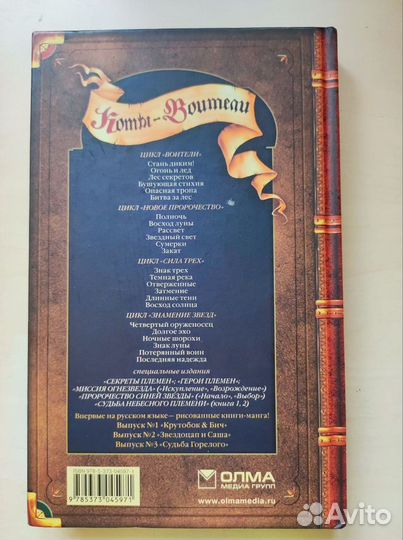 Коты-Воители
ЦИКЛ «ВОИТЕЛИ»
Стань диким!
Огонь и лед
Лес секретов
Бушующая стихия
Опасная тропа
Битва за лес
ЦИКЛ «НОВОЕ ПРОРОЧЕСТВО»
Полночь
Восход луны
Рассвет
Звездный свет
Сумерки
Закат
ЦИКЛ «СИЛА ТРЕХ»
Знак трех
Темная река
Отверженные
Затмение
Длинные тени
Восход солнца
ЦИКЛ «ЗНАМЕНИЕ ЗВЕЗД»
Четвертый оруженосец
Долгое эхо
Ночные шорохи
Знак луны
Потерянный воин
Последняя надежда
специальные издания
«СЕКРЕТЫ ПЛЕМЕН»; «ГЕРОИ ПЛЕМЕН»;
«МИССИЯ ОГНЕЗВЕЗДА» («Искупление», «Возрождение»)
«ПРОРОЧЕСТВО СИНЕЙ ЗВЕЗДЫ» («Начало», «Выбор»)
«СУДЬБА НЕБЕСНОГО ПЛЕМЕНИ» (книга 1, 2)
Впервые на русском языке — рисованные книги-манга!
Выпуск №1 «Крутобок & Бич»
Выпуск №2 «Звездоцап и Саша»
Выпуск №3 «Судьба Горелого»
ISBN 978-5-373-04597-1
9 785373 045971
ОЛМА
МЕДИА ГРУПП
www.olmamedia.ru
Avito